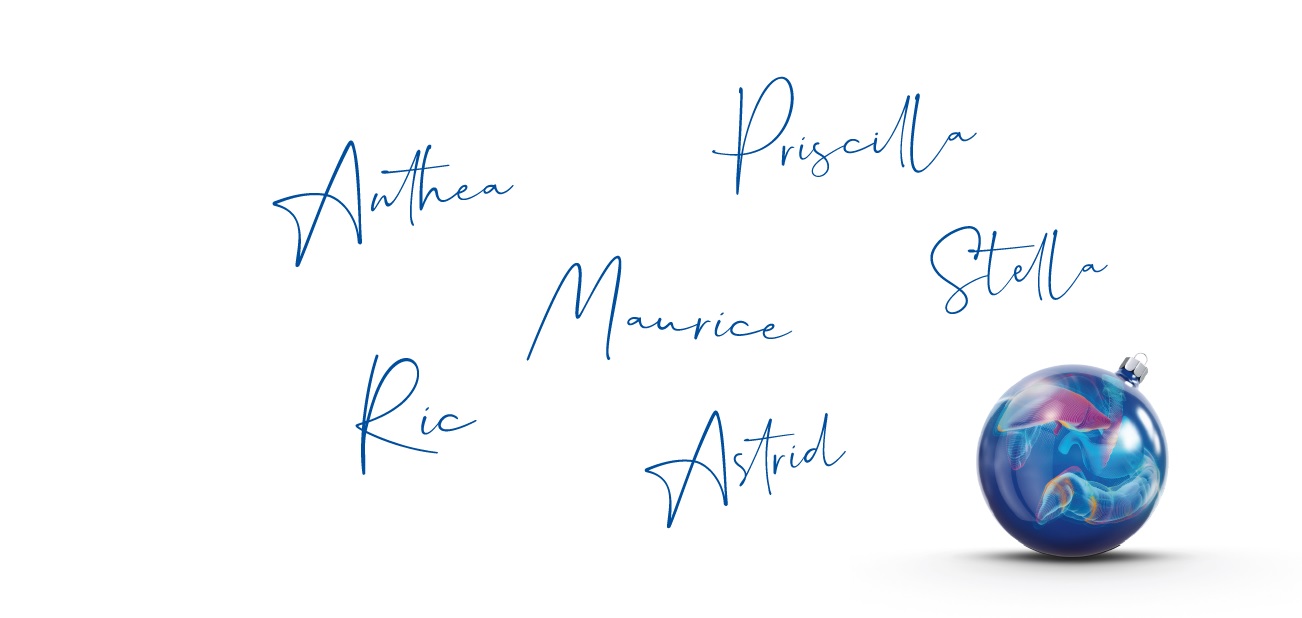 Priscilla
Anthea
Stella
Maurice
Ric
Astrid